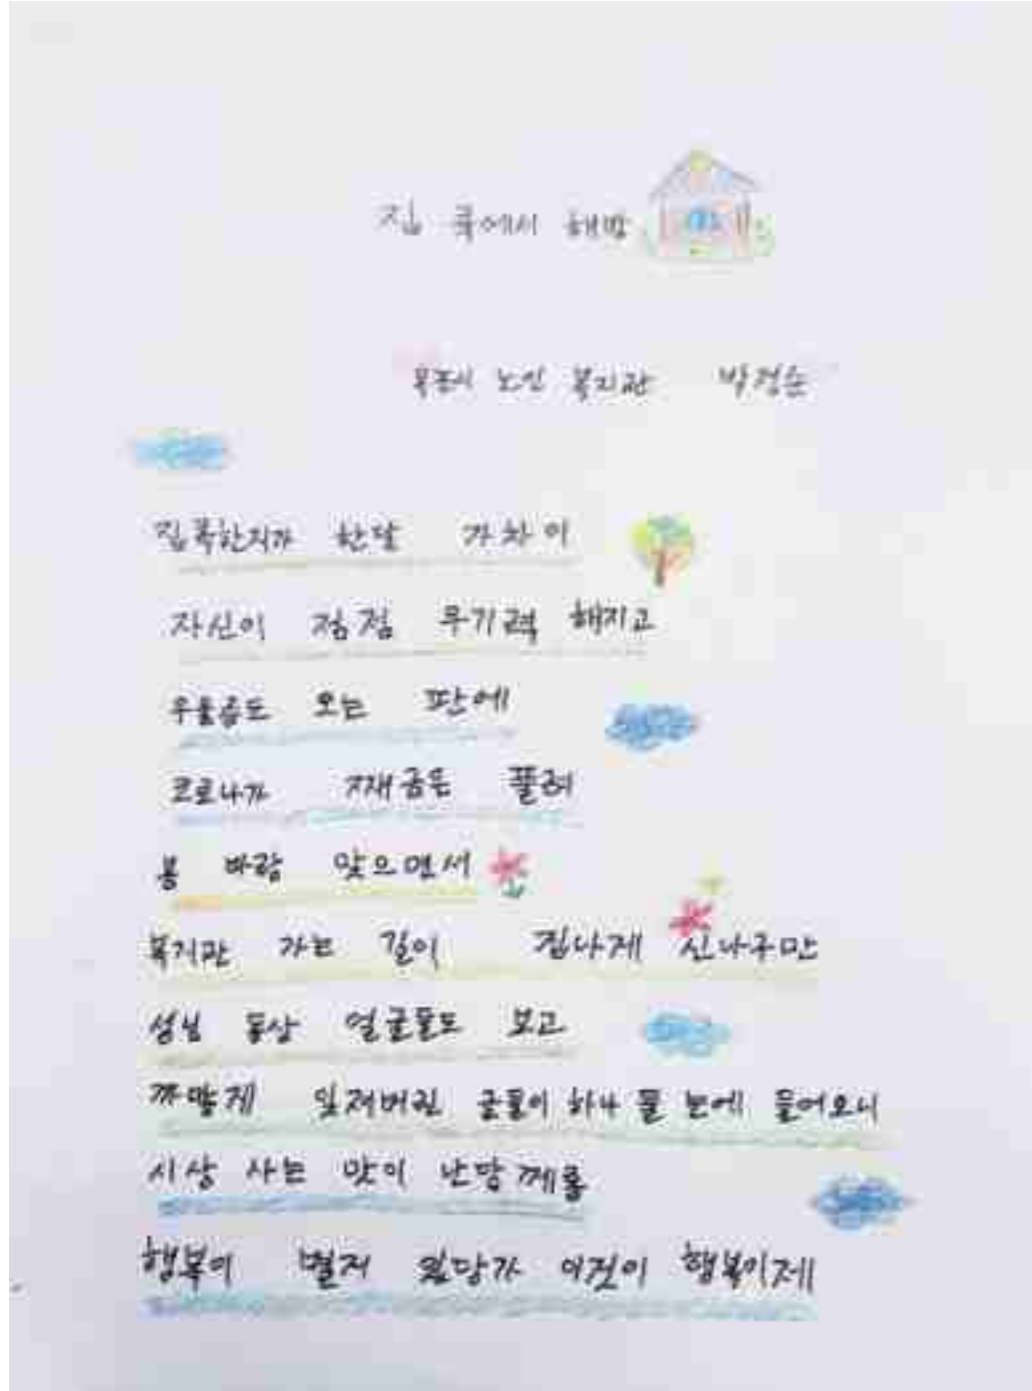 집 콕에서 해방
목포시 노인 복지관 박경순
집콕한지가 한달 가차이
자신이 점점 무기력 해지고
우울증도 오는 판에
코로나가 째금은 풀려
봄 바람 맞으면서
복지관 가는 길이 겁나게 신나구만
성님 동상 얼굴들도 보고
까맣게 잊저버린 글들이 하나 둘 눈에 들어오니
시상 사는 맛이 난당께롱
행복이 별저 있당가 이것이 행복이제